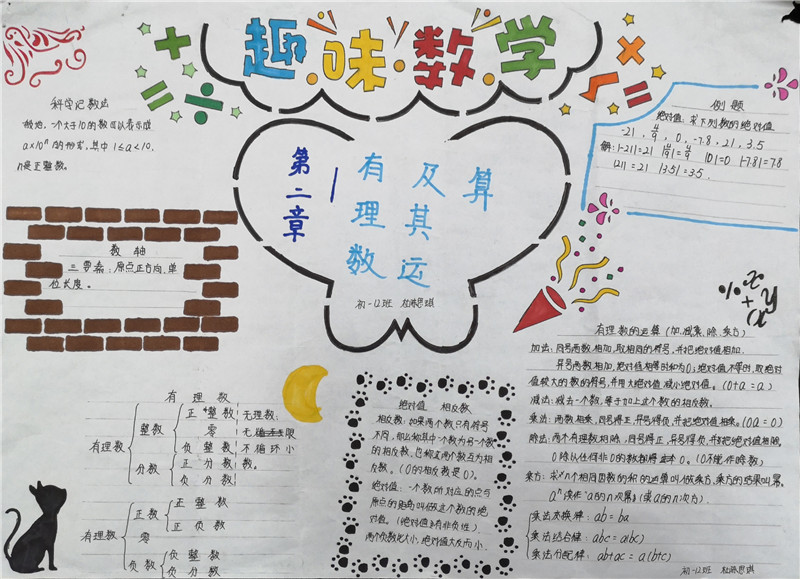 趣味数学
科学记数法
一般地，一个大于10的数可以表示成
a×10ⁿ的形式，其中1≤a<10,
n是正整数。
数轴
三要素：原点正方向、单
位长度。
第二章
有理数
及其运
算
初一12班
例题
绝对值：求下列数的绝对值
-21，4/9，0，-7.8，21，3.5
解：|-21|=21 |4/9|=4/9 |0|=0 |-7.8|=7.8
|21|=21 |3.5|=3.5
有理数
有理数
整数
正整数
零
负整数
分数
正分数
负分数
无理数：
无限
不循环小
数。
有理数
正数
正整数
正负数
零
负数
负整数
负分数
绝对值 相反数
相反数：如果两个数只有符号
不同，那么称其中一个数为另一个数
的相反数，也称这两个数互为相
反数。(0的相反数是0)。
绝对值：一个数所对应的点与
原点的距离叫做这个数的绝
对值。(绝对值具有非负性)。
两个负数比大小，绝对值大反而小。
% z + y x
有理数的运算（加、减、乘、除、乘方）
加法：同号两数相加，取相同的符号，并把绝对值相加.
异号两数相加，绝对值相等时和为0；绝对值不等时，取绝对
值较大的数的符号，并用大绝对值减小绝对值。(0+a=a)
减法：减去一个数，等于加上这个数的相反数。
乘法：两数相乘，同号得正，异号得负，并把绝对值相乘。(0a=0)
除法：两个有理数相除，同号得正，异号得负，并把绝对值相除
0除以任何非0的数都得0。(0不能作除数)
乘方：求n个相同因数的积的运算叫做乘方，乘方的结果叫幂。
aⁿ读作“a的n次幂”(或a的n次方).
乘法交换律：ab=ba
乘法结合律：abc=a(bc)
乘法分配律：ab+ac=a(b+c)
初一12班